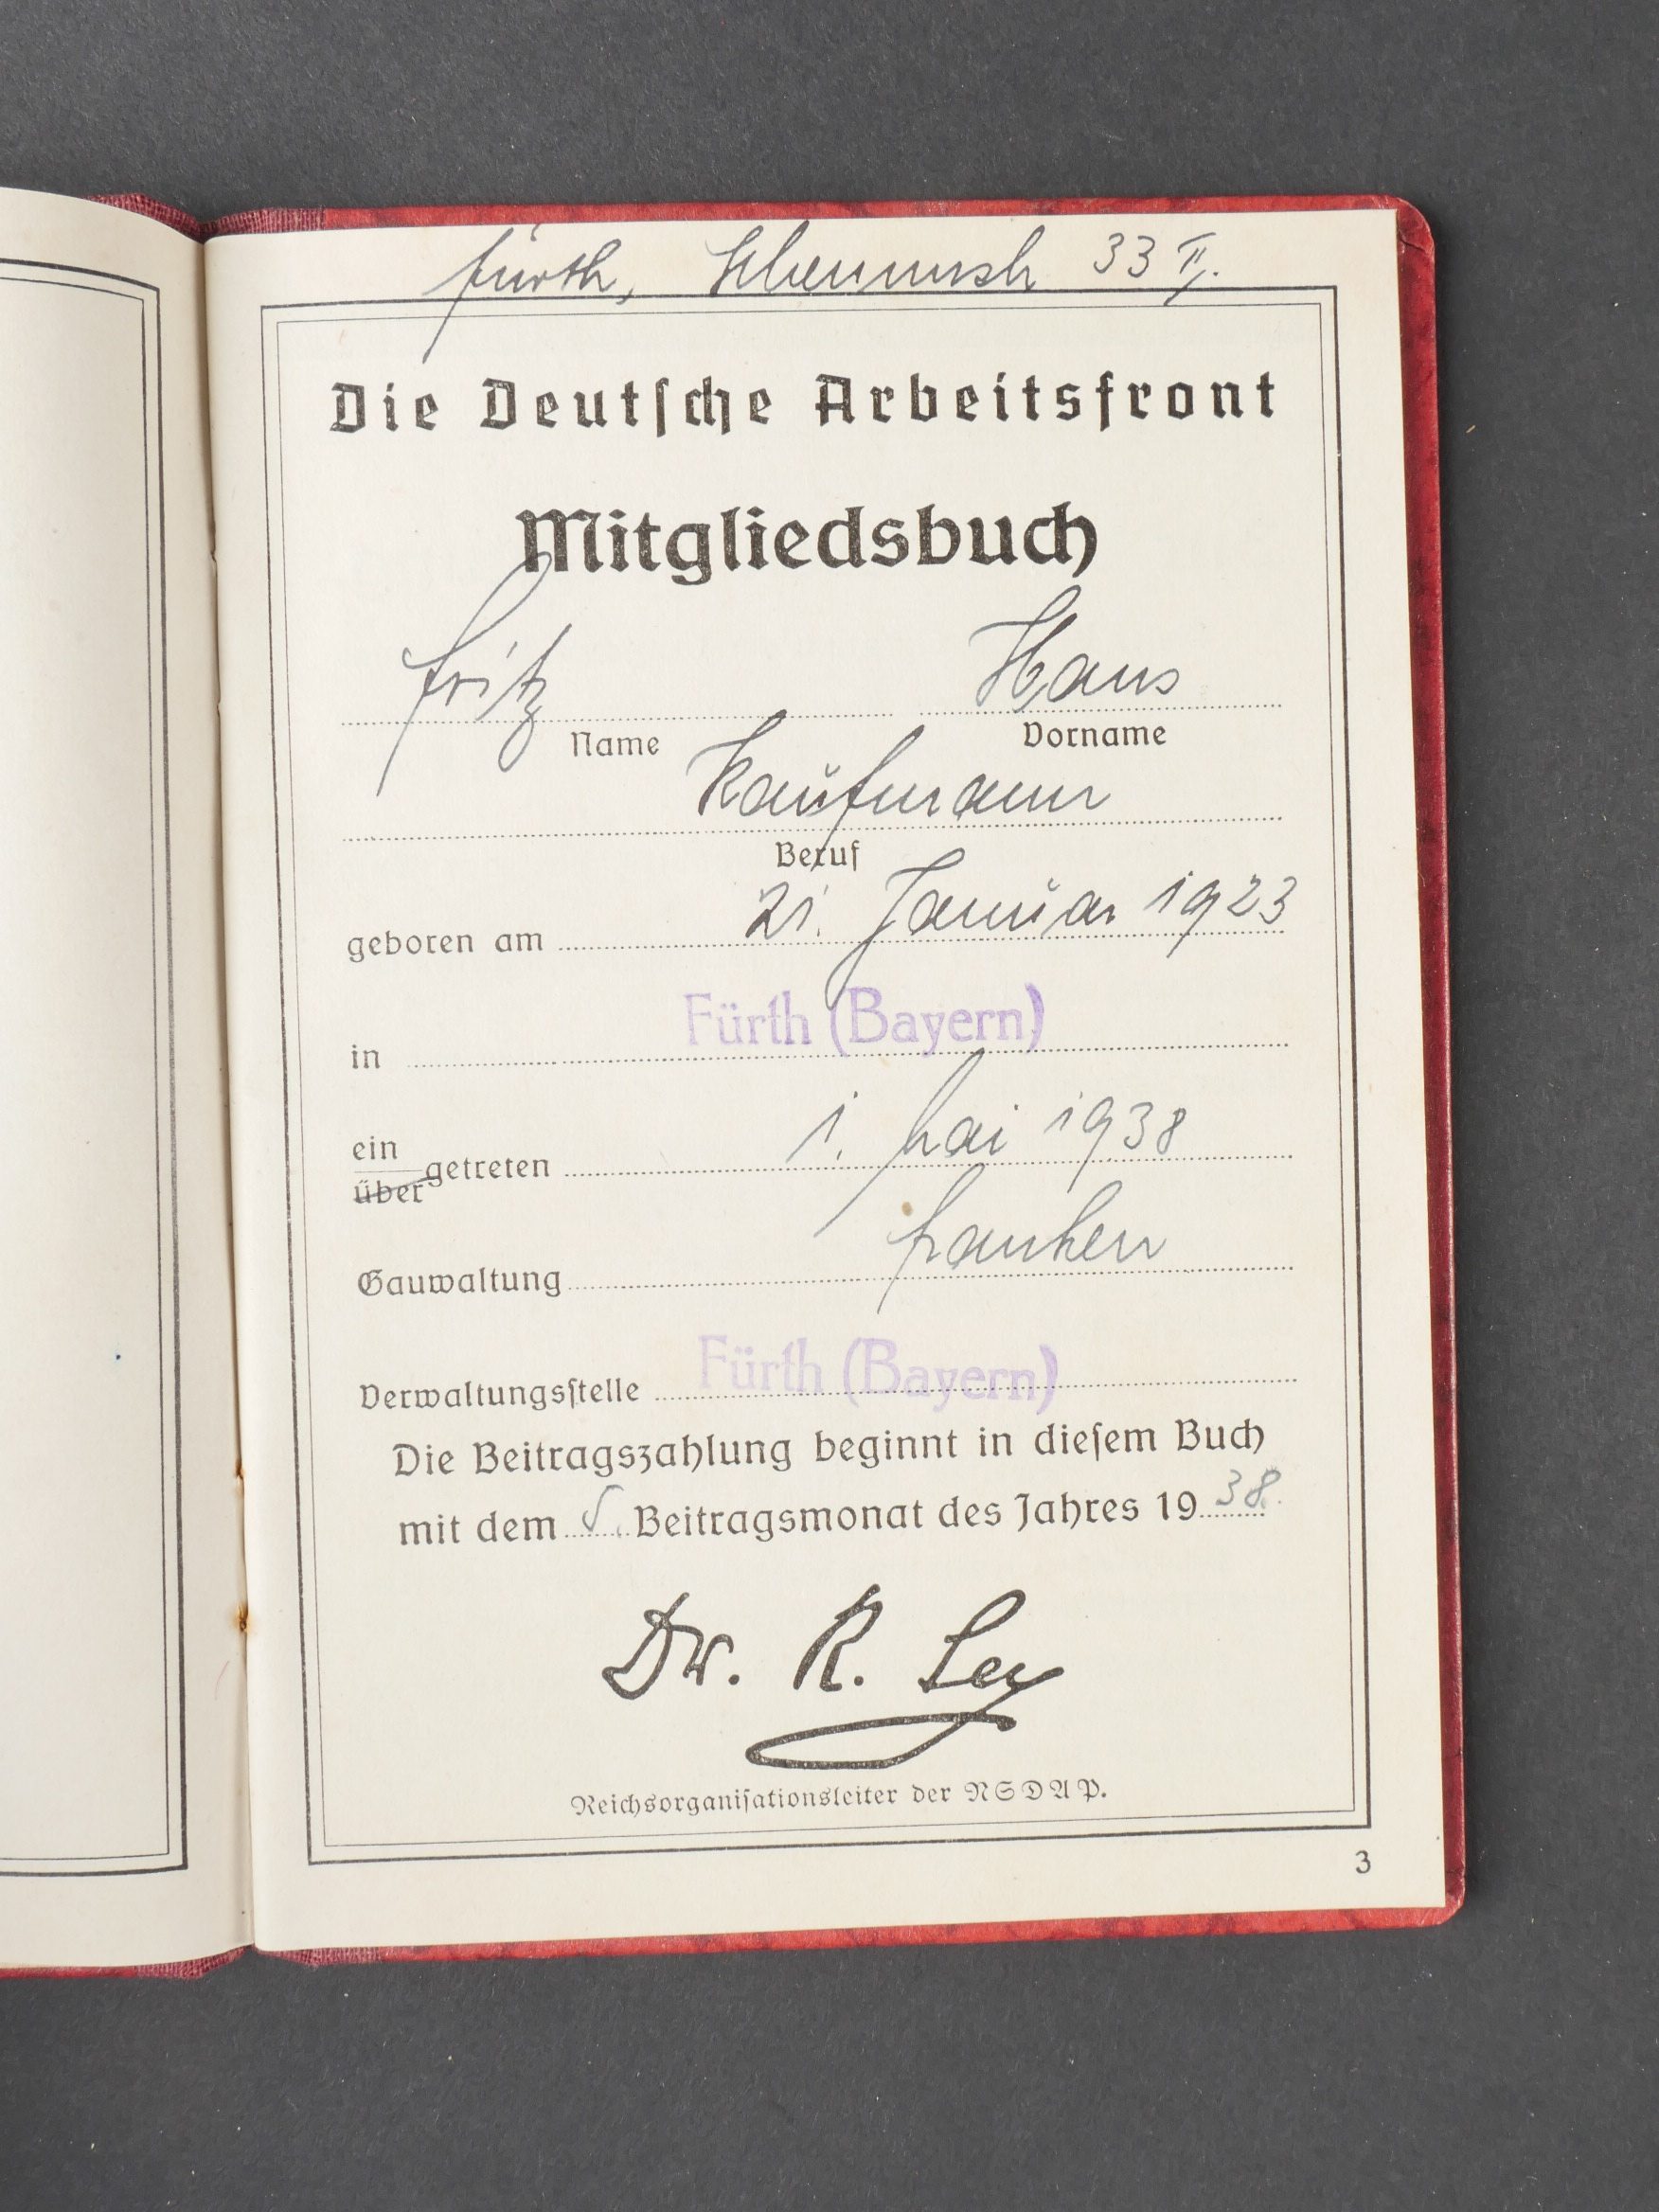 Fürth, 33 II.
Die Deutsche Arbeitsfront
Mitgliedsbuch
Fritz Hans
Name Vorname
Kaufmann
Beruf
geboren am 21. Januar 1923
in Fürth (Bayern)
ein
über getreten 1. Mai 1938
Gauwaltung Franken
Verwaltungsstelle Fürth (Bayern)
Die Beitragszahlung beginnt in diesem Buch
mit dem 5. Beitragsmonat des Jahres 1938.
Dr. R. Ley
Reichsorganisationsleiter der NSDAP.
3